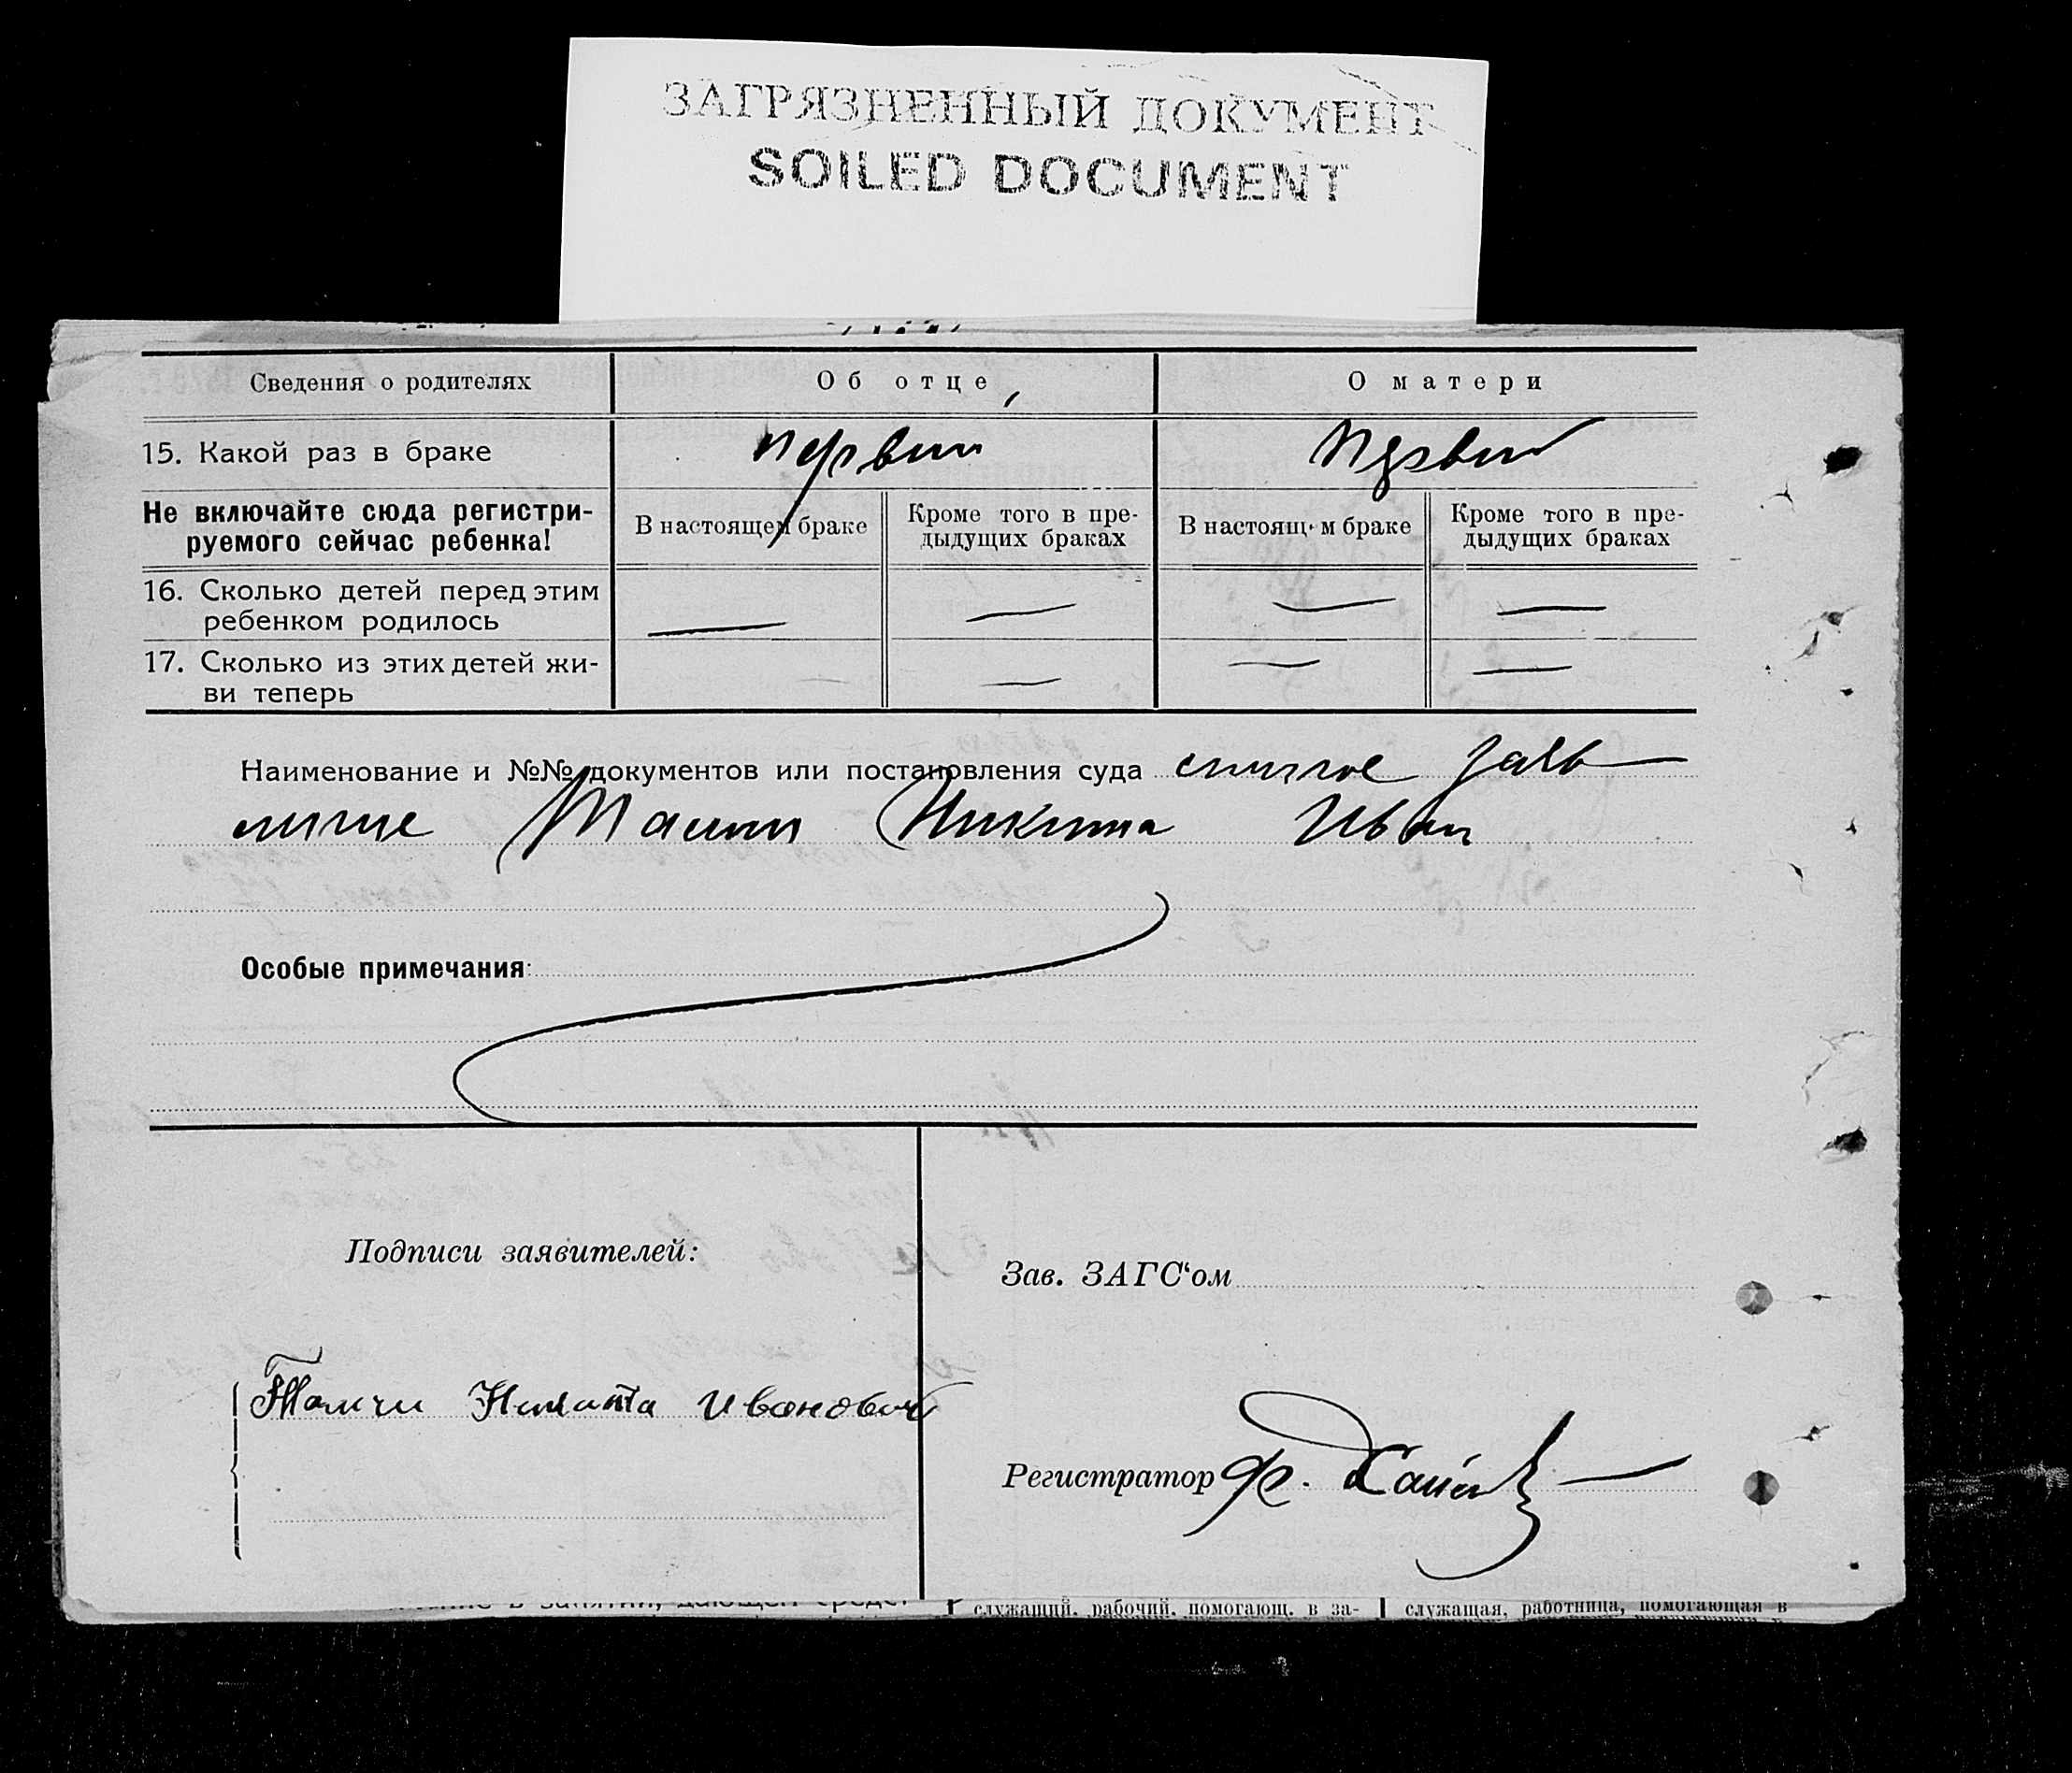 ЗАГРЯЗНЕННЫЙ ДОКУМЕНТ
SOILED DOCUMENT
Сведения о родителях Об отце О матери
15. Какой раз в браке первый первый
Не включайте сюда регистри-
руемого сейчас ребенка!
В настоящем браке
Кроме того в пре-
дыдущих браках
В настоящ м браке
Кроме того в пре-
дыдущих браках
16. Сколько детей перед этим
ребенком родилось — — — —
17. Сколько из этих детей жи-
ви теперь — — — —
Наименование и №№ документов или постановления суда
Никита Иван
Особые примечания:
Подписи заявителей:
Никита Иванович
Зав. ЗАГС‘ом
Регистратор
служащий, рабочий, помогающ. в за-
служащая, работница, помогающая в